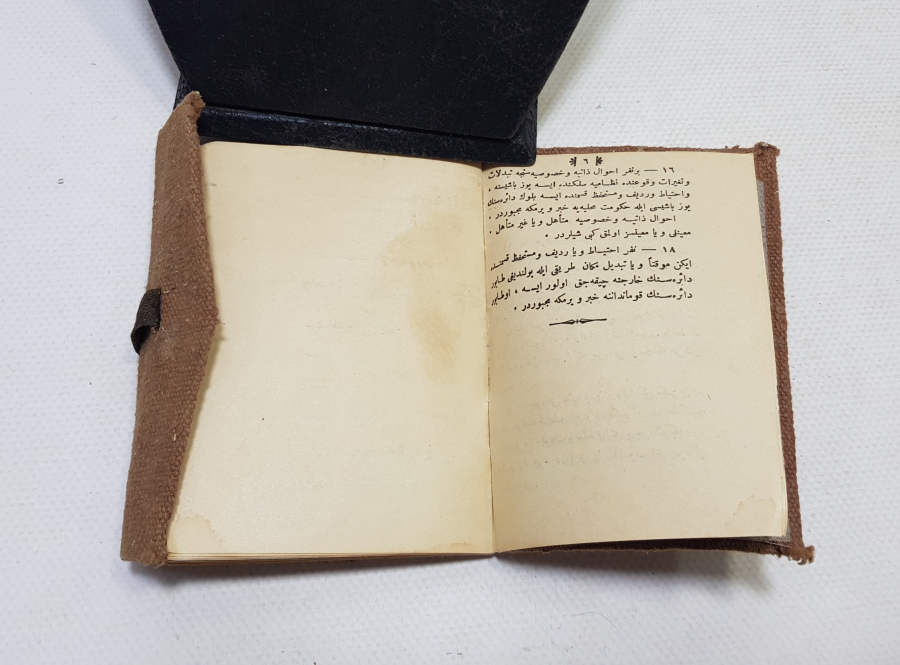 ﴿ ٦ ﴾
١٦ — برنفر احوال ذاتيه و خصوصيه‌سنجه تبدلات
و تغيرات وقوعنده نظاميه سلكنده ايسه يوز باشيسنه ،
و احتياط و رديف و مستحفظ قسمنده ايسه بلوك دائره‌سنك
يوز باشيسى ايله حكومت محليه‌يه خبر و يرمكه مجبوردر .
احوال ذاتيه و خصوصيه متأهل و يا غير متأهل ،
معينلى و يا معينسز اولمق كبى شيلردر .
١٨ — نفر احتياط و يا رديف و مستحفظ قسمنده
ايكن موقتاً و يا تبديل مكان طريقى ايله بولنديغى طابور
دائره‌سنك خارجنه چيقه‌جق اولور ايسه ، او طابور
دائره‌سنك قومانداننه خبر و يرمكه مجبوردر .